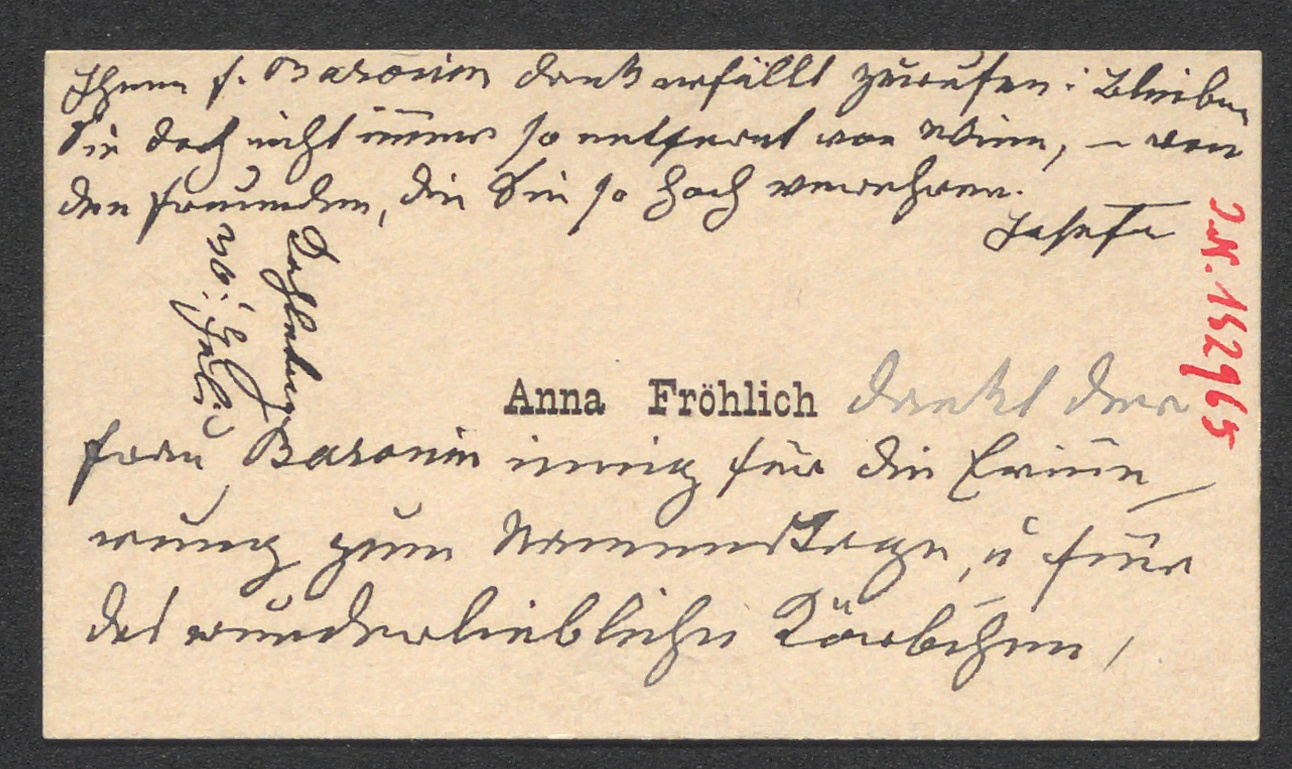 Ihnen f. Baronin dankerfüllt zurufen: Bleiben
Sie doch nicht immer so entfernt von Wien, – von
den Freunden, die Sie so hoch verehren.
Josefa
30. Juli
I.N. 152965
Anna Fröhlich dankt der
Frau Baronin innig für die Erinne
rung zum Namenstage, u für
das wunderliebliche Körbchen,